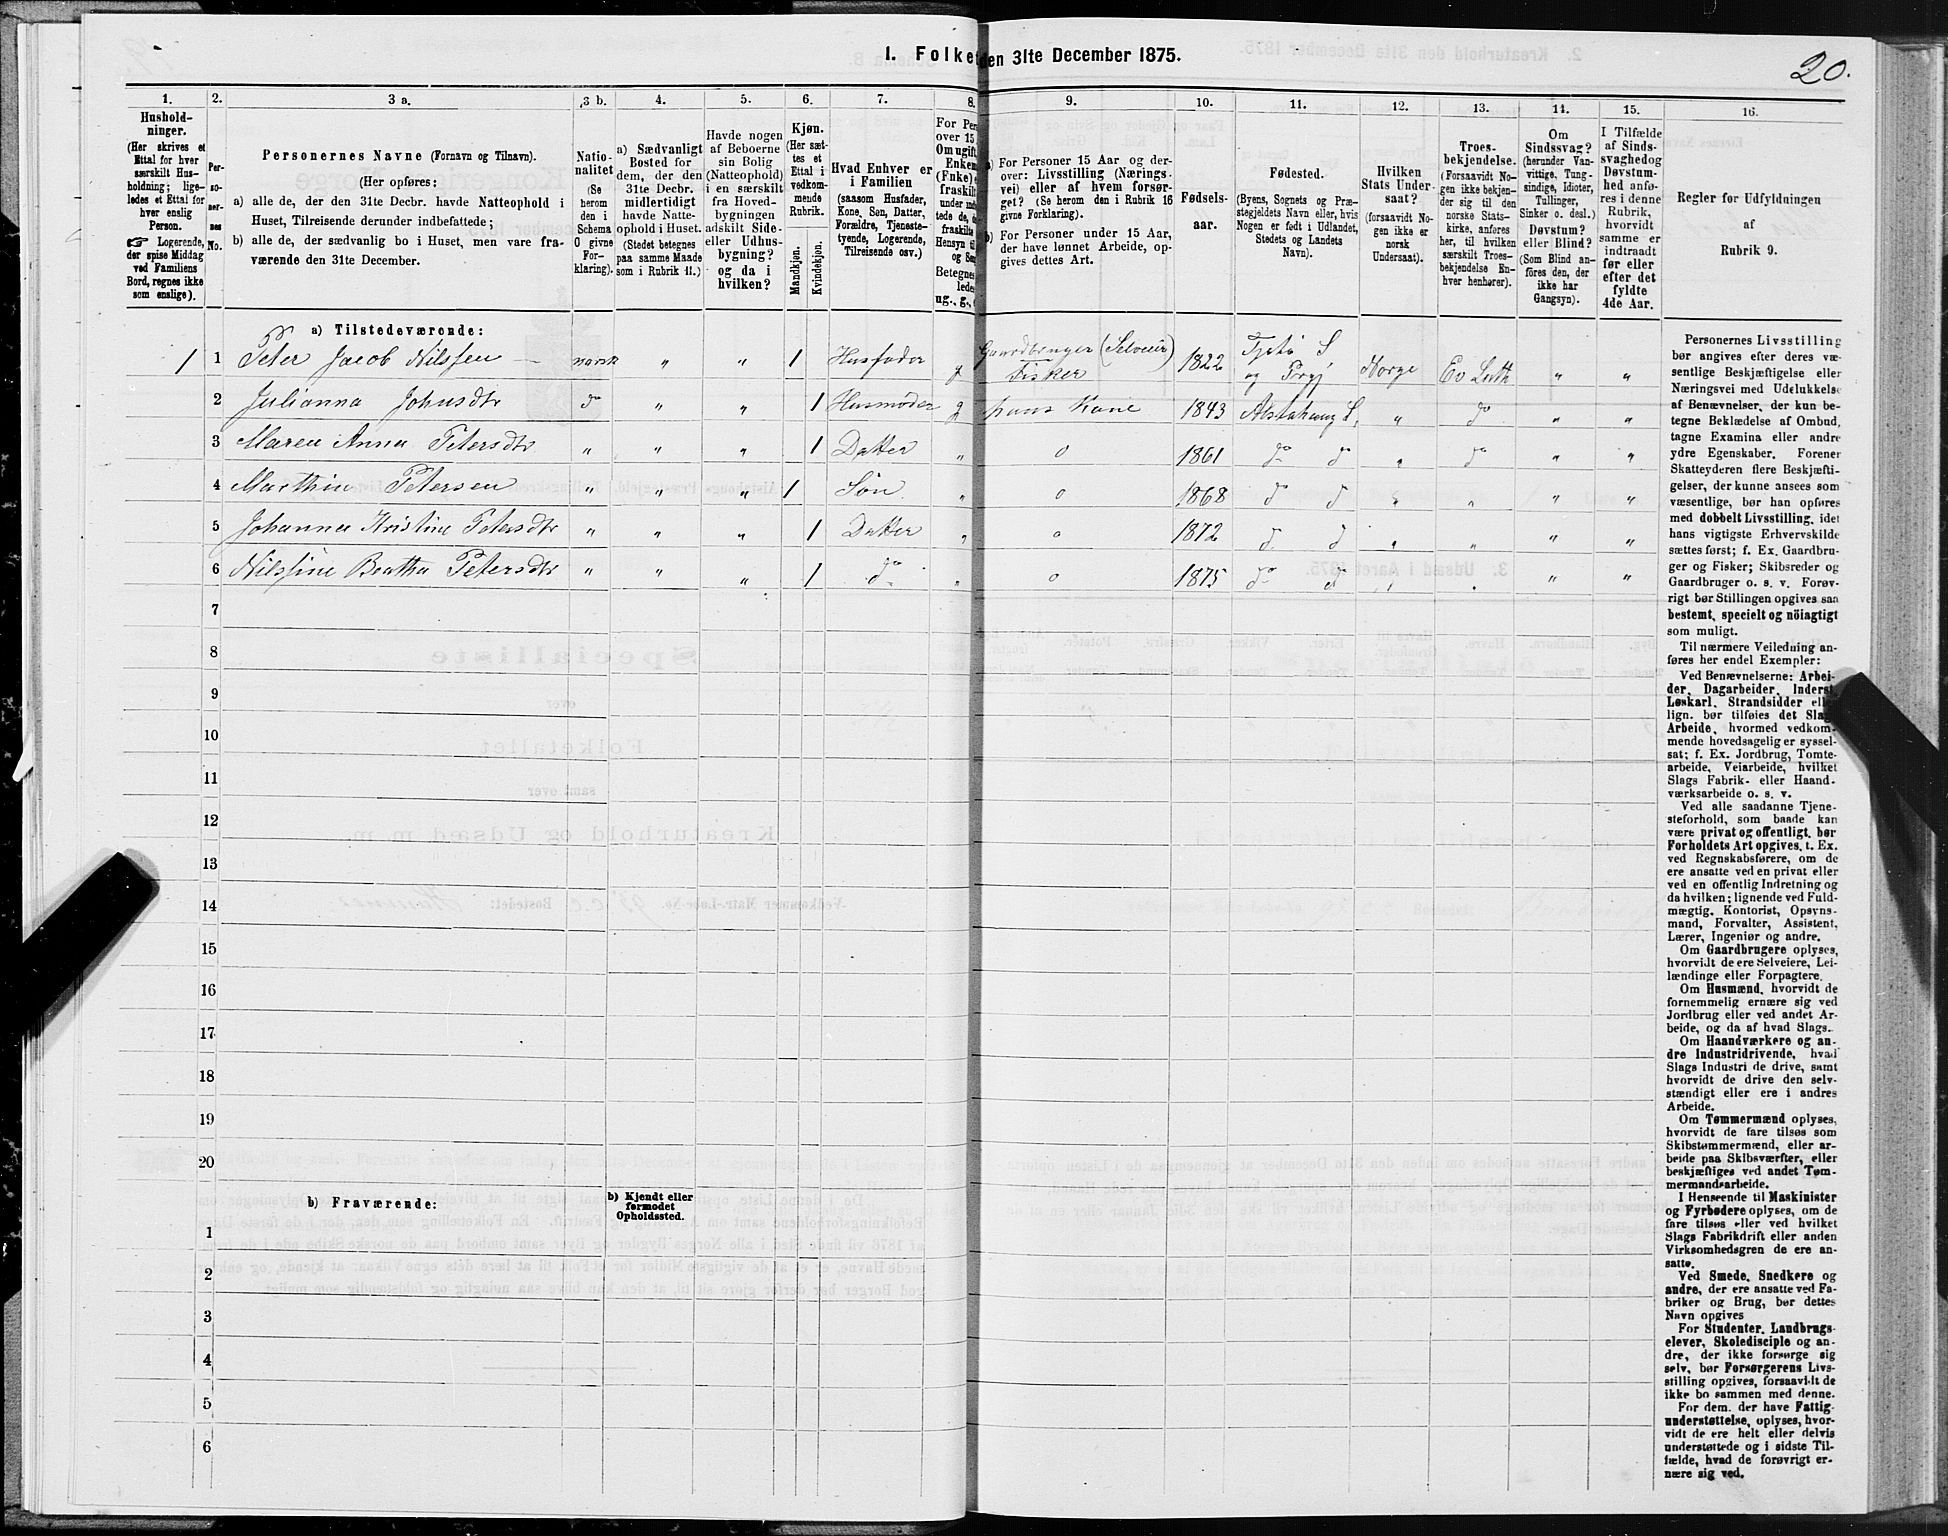 1. Folket den 31te December 1875.
20.
1.
2.
3 a.
3 b.
4.
5.
6.
7.
8.
9.
10.
11.
12.
13.
14.
15.
16.
Hushold-
ninger.
(Her skrives et
Ettal for hver
særskilt Hus-
holdning; lige-
ledes et Ettal for
hver enslig
Person.
☞ Logerende,
der spise Middag
ved Familiens
Bord, regnes ikke
som enslige).
Per-
so-
ner-
nes
No.
Personernes Navne (Fornavn og Tilnavn).
(Her opføres:
a) alle de, der den 31te Decbr. havde Natteophold i
Huset, Tilreisende derunder indbefattede;
b) alle de, der sædvanlig bo i Huset, men vare fra-
værende den 31te December.
Natio-
nalitet
(Se
herom
den i
Schema
O givne
For-
klaring).
a) Sædvanligt
Bosted for
dem, der den
31te Decbr.
midlertidigt
havde Natte-
ophold i Huset.
(Stedet betegnes
paa samme Maade
som i Rubrik 11.)
Havde nogen
af Beboerne
sin Bolig
(Natteophold)
i en særskilt
fra Hoved-
bygningen
adskilt Side-
eller Udhus-
bygning?
og da i
hvilken?
Kjøn.
(Her sæt-
tes et
Ettal i
vedkom-
mende
Rubrik.
Mandkjøn.
Kvindekjøn.
Hvad Enhver er
i Familien
(saasom Husfader,
Kone, Søn, Datter,
Forældre, Tjeneste-
tyende, Logerende,
Tilreisende osv.)
For Per
over 15
Om ugift,
Enkem
(Enke) e
fraskilt
under
tede de,
fraskilte
Hensyn ti
og Sen
Betegnes
lede
ug., g.,
a) For Personer 15 Aar og der-
over: Livsstilling (Nærings-
vei) eller af hvem forsør-
get? (Se herom den i Rubrik 16
givne Forklaring).
b) For Personer under 15 Aar,
der have lønnet Arbeide, op-
gives dettes Art.
Fødsels-
aar.
Fødested.
(Byens, Sognets og Præ-
stegjeldets Navn eller, hvis
Nogen er født i Udlandet,
Stedets og Landets
Navn).
Hvilken
Stats Under-
saat?
(forsaavidt No-
gen ikke er
norsk
Undersaat).
Troes-
bekjendelse.
(Forsaavidt No-
gen ikke bekjen-
der sig til den
norske Stats-
kirke, anføres
her, til hvilken
særskilt Troes-
bekjendelse En-
hver henhører).
Om
Sindssvag?
(herunder Van-
vittige, Tung-
sindige, Idioter,
Tullinger,
Sinker o. desl.)
Døvstum?
eller Blind?
(Som Blind an-
føres den, der
ikke har
Gangsyn).
I Tilfælde
af Sinds-
svaghedog
Døvstum-
hed anfø-
res i denne
Rubrik,
hvorvidt
samme er
indtraadt
før eller
efter det
fyldte
4de Aar.
Regler for Udfyldningen
af
Rubrik 9.
a) Tilstedeværende:
1 1 Peter Jacob Nilssen norsk " " 1 Husfader g Gaardbruger (Selveier) Fisker 1822 Tjøtø S og Prgj Norge Ev Luth " "
2 Julianna Johnsdtr do " " 1 Husmoder g hans Kone 1843 Alstahaug S, " do " "
3 Maren Anna Petersdtr " " " 1 Datter " 0 1861 do do " do " "
4 Marthin Petersen " " " 1 Søn. " 0 1868 do do " " " "
5 Johanna Kristine Petersdtr " " " 1 Datter " 0 1872 do do " " " "
6 Nilssine Beatha Petersdtr " " " 1 do " 0 1875 do do " " " "
7
8
9
10
11
12
13
14
15
16
17
18
19
20
b) Fraværende:
b) Kjendt eller
formodet
Opholdssted.
1
2
3
4
5
6
Personernes Livsstilling
bør angives efter deres væ-
sentlige Beskjæftigelse eller
Næringsvei med Udelukkelse
af Benævnelser, der kun be-
tegne Beklædelse af Ombud,
tagne Examina eller andre
ydre Egenskaber. Forener
Skatteyderen flere Beskjæfti-
gelser, der kunne ansees som
væsentlige, bør han opføres
med dobbelt Livsstilling, idet
hans vigtigste Erhvervskilde
sættes først; f. Ex. Gaardbru-
ger og Fisker; Skibsreder og
Gaardbruger o. s. v. Forøv-
rigt bør Stillingen opgives saa
bestemt, specielt og nöiagtigt
som muligt.
Til nærmere Veiledning an-
føres her endel Exempler:
Ved Benævnelserne: Arbei-
der, Dagarbeider, Inderst,
Løskarl, Strandsidder eller
lign. bør tilføies det Slags
Arbeide, hvormed vedkom-
mende hovedsagelig er syssel-
sat; f. Ex. Jordbrug, Tomte-
arbeide, Veiarbeide, hvilket
Slags Fabrik- eller Haand-
værksarbeide o. s. v.
Ved alle saadanne Tjene-
steforhold, som baade kan
være privat og offentligt, bør
Forholdets Art opgives, t. Ex.
ved Regnskabsførere, om de
ere ansatte ved en privat eller
ved en offentlig Indretning og
da hvilken; lignende ved Fuld-
mægtig, Kontorist, Opsyns-
mand, Forvalter, Assistent,
Lærer, Ingeniør og andre.
Om Gaardbrugere oplyses,
hvorvidt de ere Selveiere, Lei-
lændinge eller Forpagtere.
Om Husmænd, hvorvidt de
fornemmelig ernære sig ved
Jordbrug eller ved andet Ar-
beide, og da af hvad Slags.
Om Haandværkere og an-
dre Industridrivende, hvad
Slags Industri de drive, samt
hvorvidt de drive den selv-
stændigt eller ere i andres
Arbeide.
Om Tømmermænd oplyses,
hvorvidt de fare tilsøs som
Skibstømmermænd, eller ar-
beide paa Skibsværfter, eller
beskjæftiges ved andet Tøm-
mermandsarbeide.
I Henseende til Maskinister
og Fyrbødere oplyses, om de
fare tilsøs eller ved hvilket
Slags Fabrikdrift eller anden
Virksomhedsgren de ere an-
satte.
Ved Smede, Snedkere og
andre, der ere ansatte ved Fa-
briker og Brug, bør dettes
Navn opgives
For Studenter, Landbrugs-
elever, Skoledisciple og an-
dre, der ikke forsørge sig
selv, bør Forsørgerens Livs-
stilling opgives, forsaavidt de
ikke bo sammen med denne.
For dem, der have Fattig-
understøttelse, oplyses, hvor-
vidt de ere helt eller delvis
understøttede og i sidste Til-
fælde, hvad de forøvrigt er-
nære sig ved.